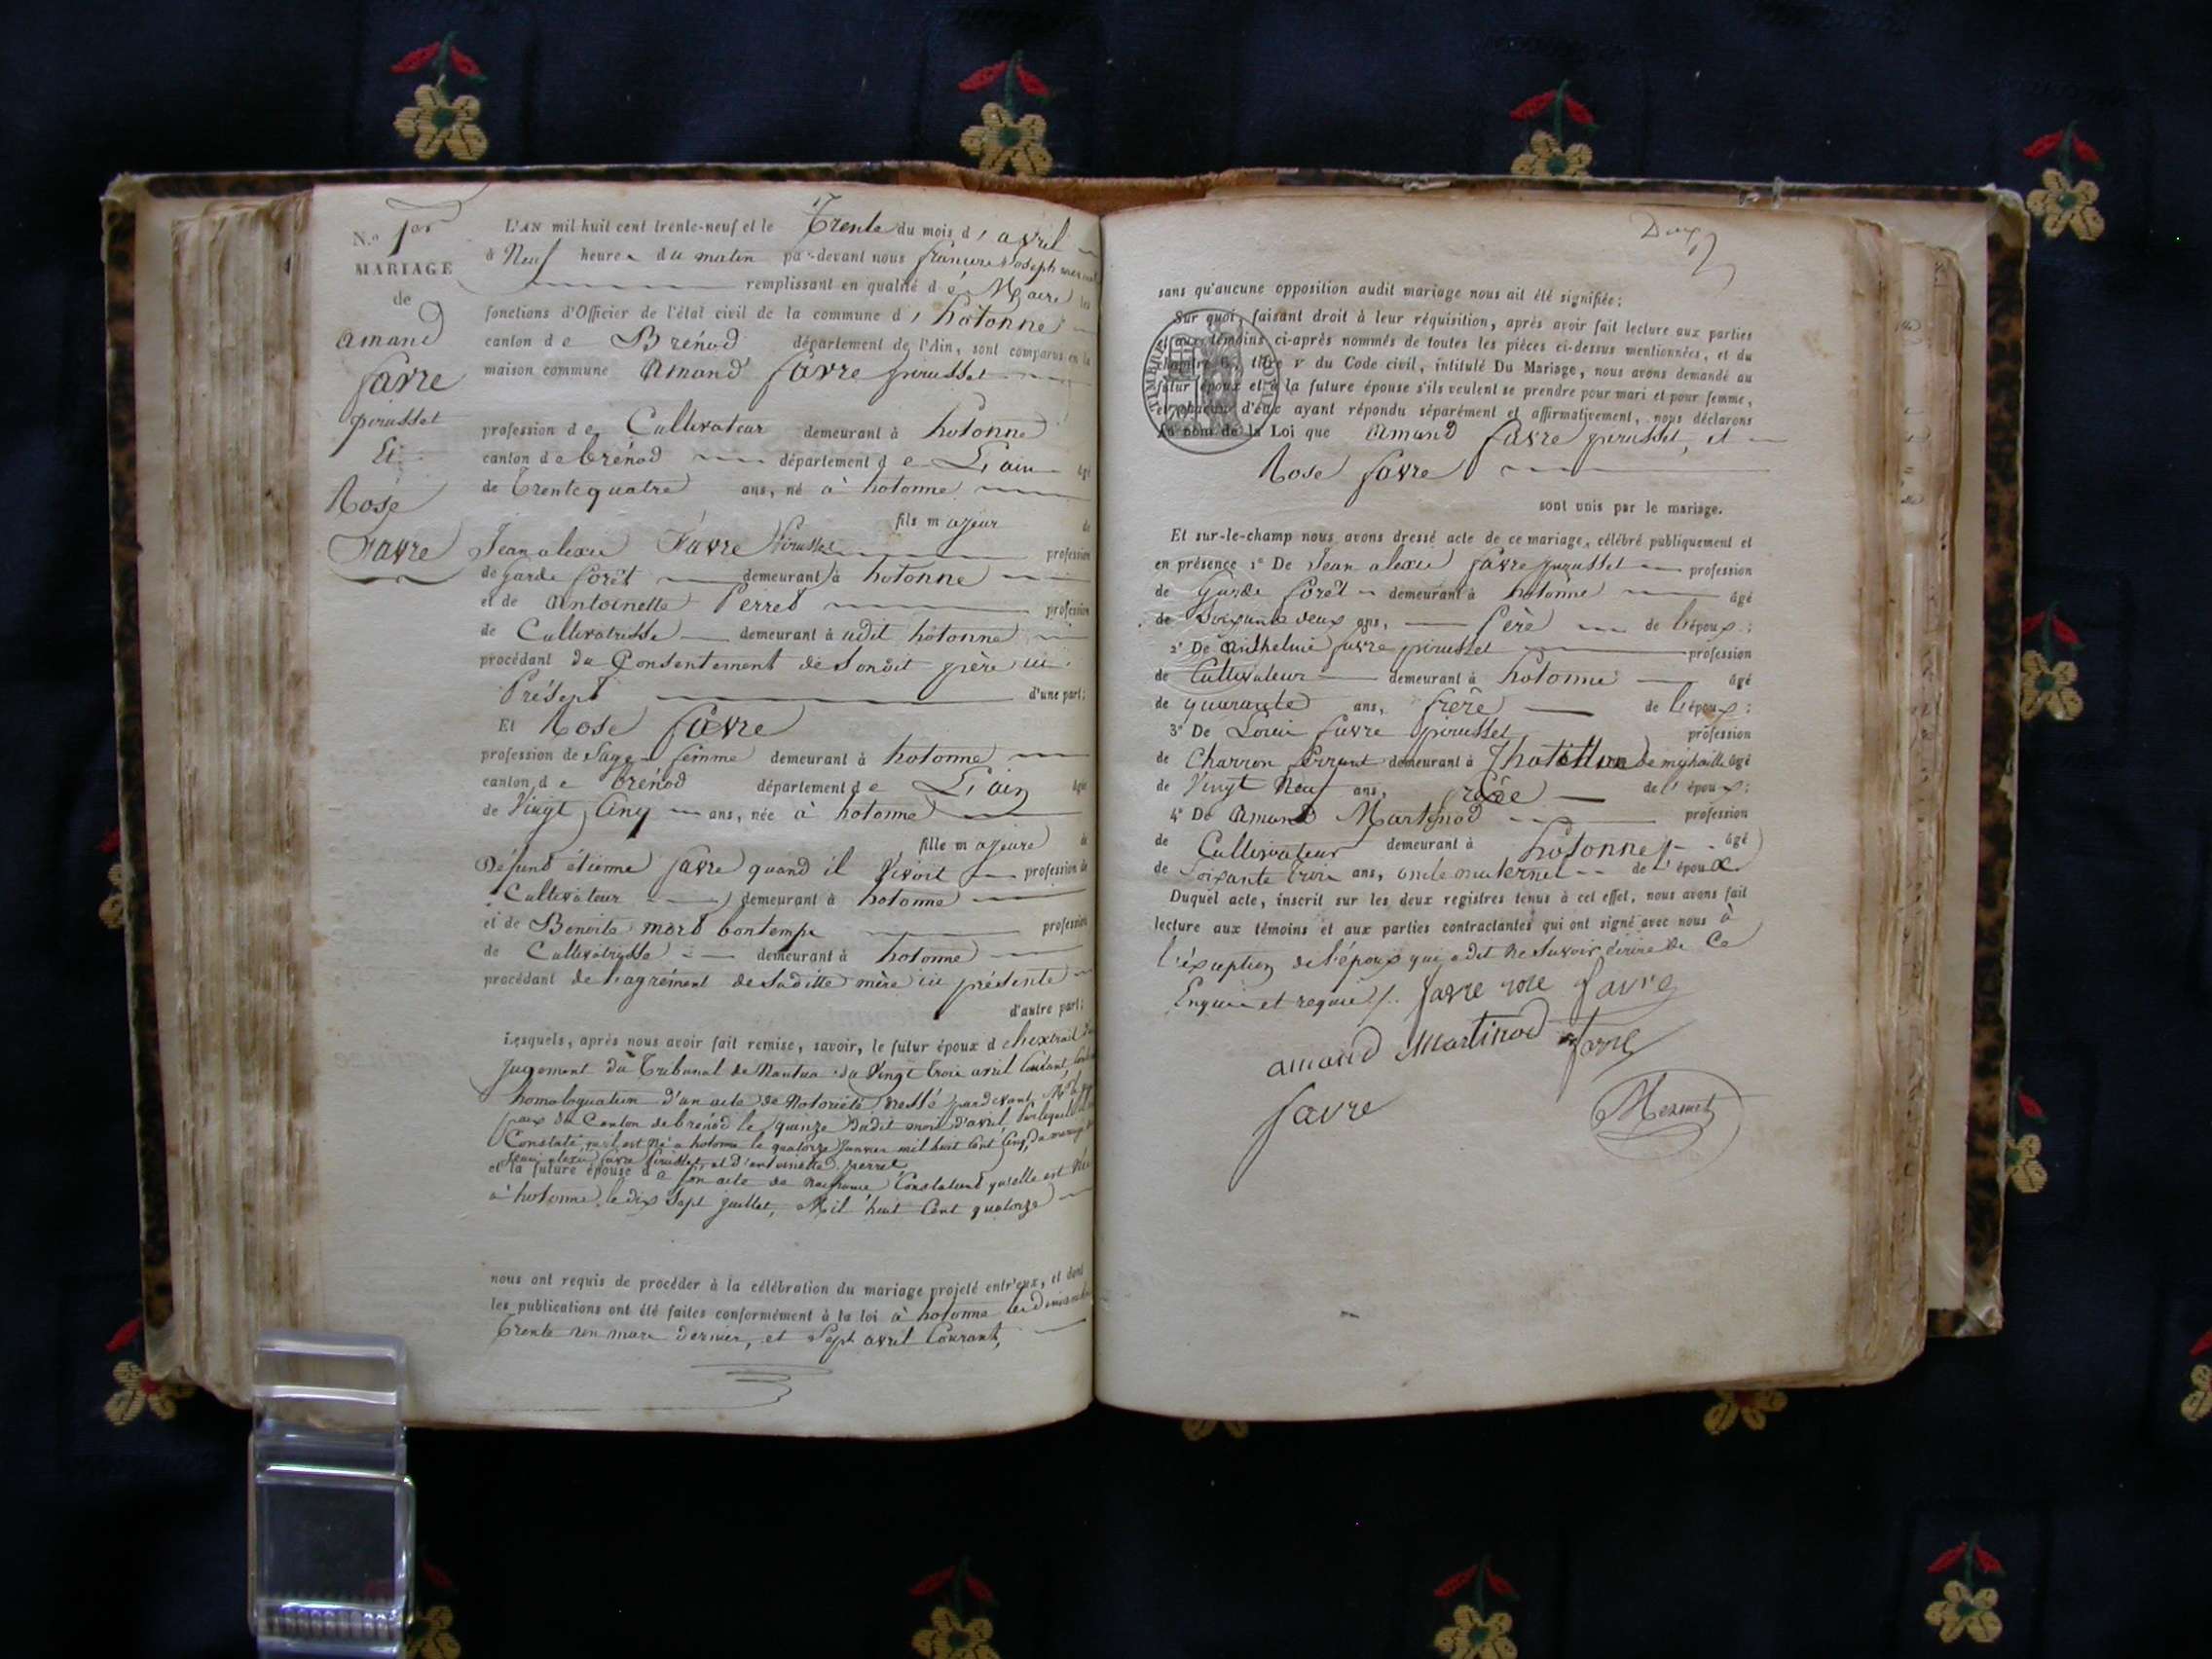 N.° 1er
MARIAGE
de
amand
favre
pirusset
Et
Rose
Favre
L'AN mil huit cent trente-neuf et le Trente du mois d'avril
à Neuf heures du matin par-devant nous joseph
remplissant en qualité de Maire les
fonctions d'Officier de l'état civil de la commune d'hotonne
canton de Brénod département de l'Ain, sont comparus en la
maison commune Amand favre pirusset
profession de Cultivateur demeurant à hotonne
canton de brénod département de L'ain âgé
de Trente quatre ans, né à hotonne
fils majeur de
Jean alexis Favre Pirusset profession
de Garde forêt demeurant à hotonne
et de Antoinette Perret profession
de Cultivatrisse demeurant à udit hotonne
procédant du Consentement de Sondit père ici
Présent d'une part;
Et Rose favre
profession de Sage femme demeurant à hotonne
canton de brénod département de L'ain âgée
de Vingt Cinq ans, née à hotonne
fille majeure de
Défunt étienne favre quand il Vivoit profession de
Cultivateur demeurant à hotonne
et de Benoite mort bontemps profession
de Cultivatrisse demeurant à hotonne
procédant de l'agrément de Saditte mère ici présente
d'autre part;
Lesquels, après nous avoir fait remise, savoir, le futur époux de l'extrait d'un
jugement du Tribunal de Nantua du Vingt trois avril Courant,
homologuation d'un acte de Notoriété dressé pardevant
paix du Canton de brénod le quinze dudit mois d'avril, lequel
Constate qu'il est Né à hotonne le quatorze Janvier mil huit Cent Cinq, du mariage de
Jean alexis favre pirusset et d'antoinette perret
et la future épouse de son acte de naissance Constatant qu'elle est Née
à hotonne le dix Sept juillet, Mil huit Cent quatorze
nous ont requis de procéder à la célébration du mariage projeté entr'eux, et dont
les publications ont été faites conformément à la loi à hotonne les dimanches
Trente un mars dernier, et Sept avril Courant,
Deux
sans qu'aucune opposition audit mariage nous ait été signifiée;
Sur quoi, faisant droit à leur réquisition, après avoir fait lecture aux parties
et aux témoins ci-après nommés de toutes les pièces ci-dessus mentionnées, et du
chapitre 6, titre v du Code civil, intitulé Du Mariage, nous avons demandé au
futur époux et à la future épouse s'ils veulent se prendre pour mari et pour femme,
et chacun d'eux ayant répondu séparément et affirmativement, nous déclarons
Au nom de la Loi que Amand favre pirusset, et
Rose favre
sont unis par le mariage.
TIMBRE ROYAL
Et sur-le-champ nous avons dressé acte de ce mariage, célébré publiquement et
en présence 1° De Jean alexis favre pirusset profession
de Garde forêt demeurant à hotonne âgé
de Soixante deux ans, Père de l'époux;
2° De Anthelme favre pirusset profession
de Cultivateur demeurant à hotonne âgé
de quarante ans, frère de l'époux;
3° De Louis favre pirusset profession
de Charron ferrant demeurant à Chatillon de michaille âgé
de Vingt Neuf ans, frère de l'époux;
4° De Amand Martinod profession
de Cultivateur demeurant à hotonne âgé
de Soixante trois ans, oncle maternel de l'époux.
Duquel acte, inscrit sur les deux registres tenus à cet effet, nous avons fait
lecture aux témoins et aux parties contractantes qui ont signé avec nous à
l'exeption de l'époux qui a dit ne Savoir écrire de Ce
Enquis et requis favre rose favre
amand Martinod favre
favre Mermet